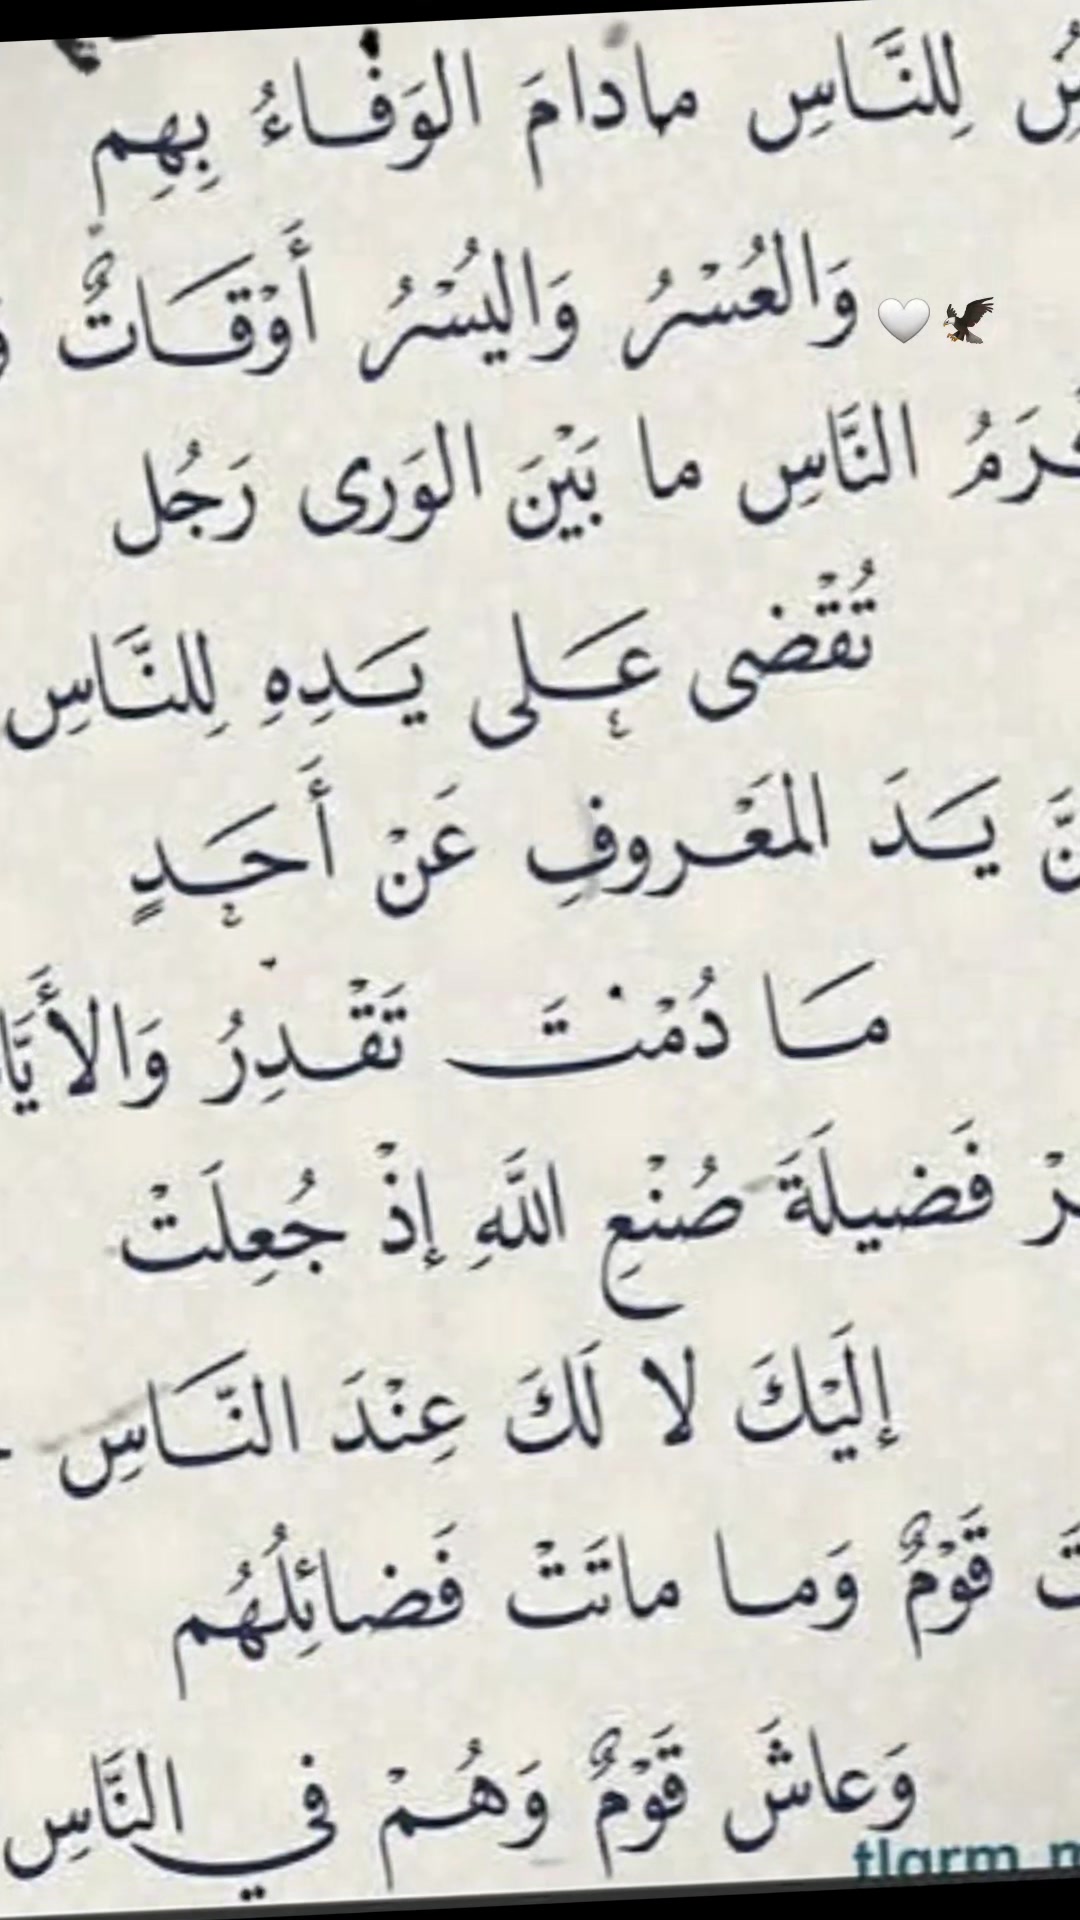 لِلنَّاسِ مادامَ الوَفَاءُ بِهِم
وَالعُسْرُ وَاليُسْرُ أَوْقَاتٌ
النَّاسِ ما بَيْنَ الوَرى رَجُل
تُقْضى عَلى يَدِهِ لِلنَّاسِ
يَدَ المَعْروفِ عَنْ أَحَدٍ
مَا دُمْتَ تَقْدِرُ
فَضيلَةَ صُنْعِ اللَّهِ إذْ جُعِلَتْ
إلَيْكَ لا لَكَ عِنْدَ النَّاسِ
قَوْمٌ وَما ماتَتْ فَضائِلُهُم
وَعاشَ قَوْمٌ وَهُمْ في النَّاسِ